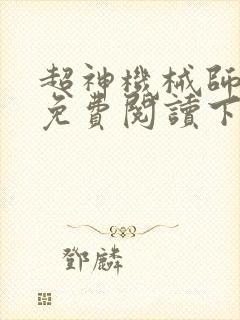 超神機械師
免費閱讀下
鄧麟